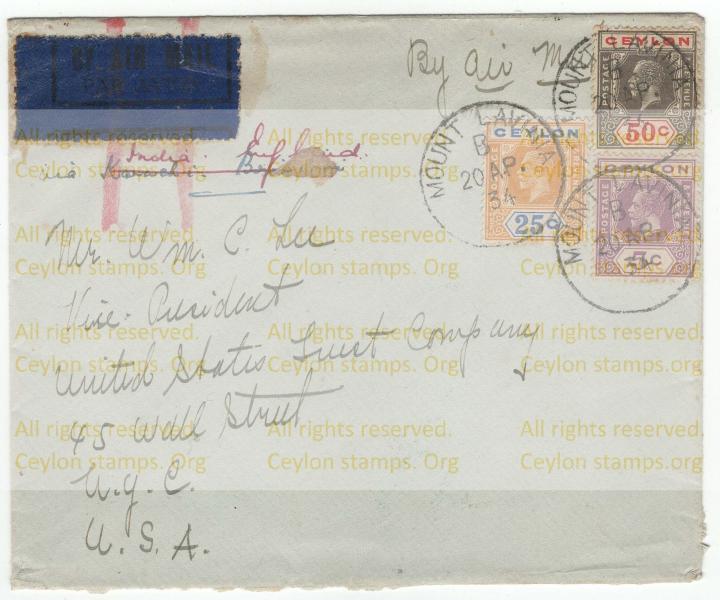 BY AIR MAIL
PAR AVION
By Air
CEYLON
POSTAGE
REVENUE
50c
CEYLON
25c
CEYLON
POSTAGE
5c
MOUNT LAVINIA
B
20 AP.
34
MOUNT LAVINIA
B
20 AP.
MOUNT LAVINIA
B
20 AP.
34
India. England.
via Karachi
Mr. Wm. C. Lee
Vice. President
United States Trust Company
45 Wall Street
N.Y.C.
U.S.A.
All rights reserved. All rights reserved. All rights reserved.
Ceylon stamps. Org Ceylon stamps. Org Ceylon stamps. Org
All rights reserved. All rights reserved. All rights reserved.
Ceylon stamps. Org Ceylon stamps. Org Ceylon stamps. Org
All rights reserved. All rights reserved. All rights reserved.
Ceylon stamps. Org Ceylon stamps. Org Ceylon stamps. Org
All rights reserved. All rights reserved. All rights reserved.
Ceylon stamps. Org Ceylon stamps. Org Ceylon stamps. Org